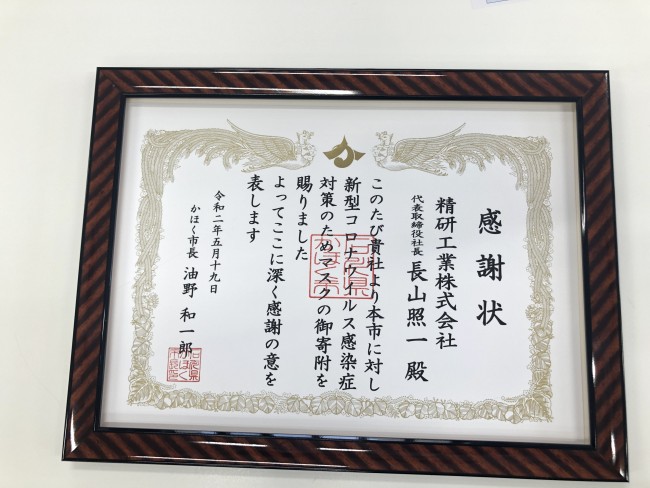 感謝状
精研工業株式会社
代表取締役社長 長山照一 殿
このたび貴社より本市に対し
新型コロナウイルス感染症
対策のためマスクの御寄附を
賜りました
よってここに深く感謝の意を
表します
令和二年五月十九日
かほく市長 油野 和一郎
石川県
かほく市